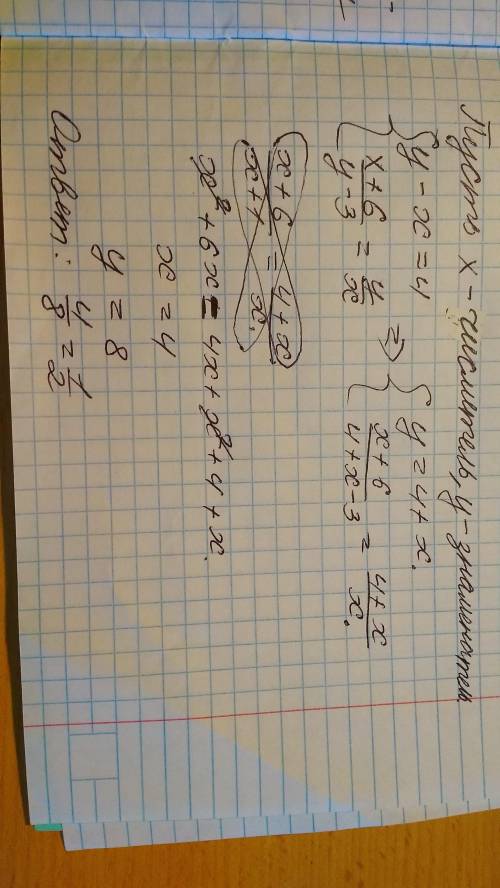 Пусть x - числитель, y - знаменатель
{ y - x = 4 => { y = 4 + x.
{ (x + 6)/(y - 3) = y/x => { (x + 6)/(4 + x - 3) = (4 + x)/x.
(x + 6)/(x + 1) = (4 + x)/x.
x² + 6x = 4x + x² + 4 + x.
x = 4
y = 8
Ответ: 4/8 = 1/2